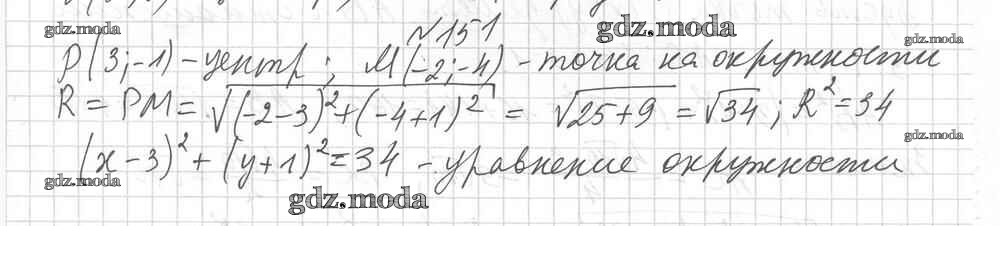 №151
gdz.moda
gdz.moda
gdz.moda
P(3;-1) - центр; M(-2;-4) - точка на окружности
R = PM = √(-2-3)²+(-4+1)² = √25+9 = √34; R²=34
gdz.moda
(x-3)²+(y+1)²=34 - уравнение окружности
gdz.moda
gdz.moda